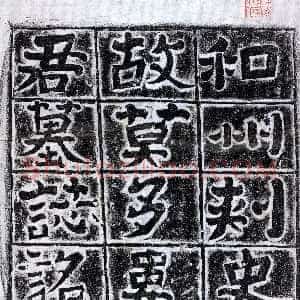 和州刺史
故莫多婁
君墓誌銘